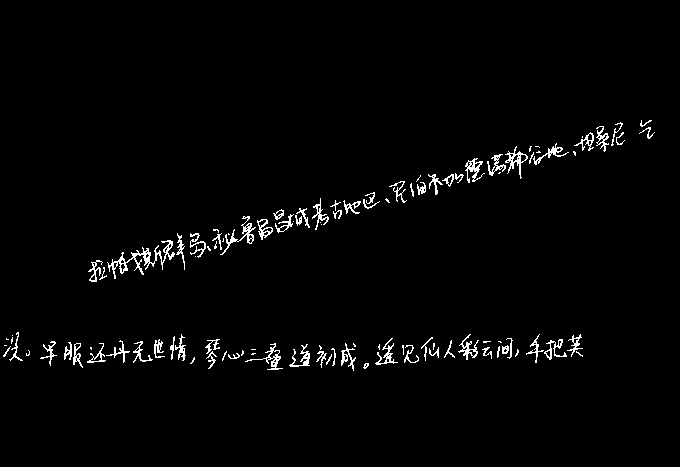 拉帕戈斯群岛、秘鲁昌昌城考古地区、尼泊尔加德满都谷地、坦桑尼 乞
没。早服还丹无世情,琴心三叠道初成。遥见仙人彩云间,手把芙